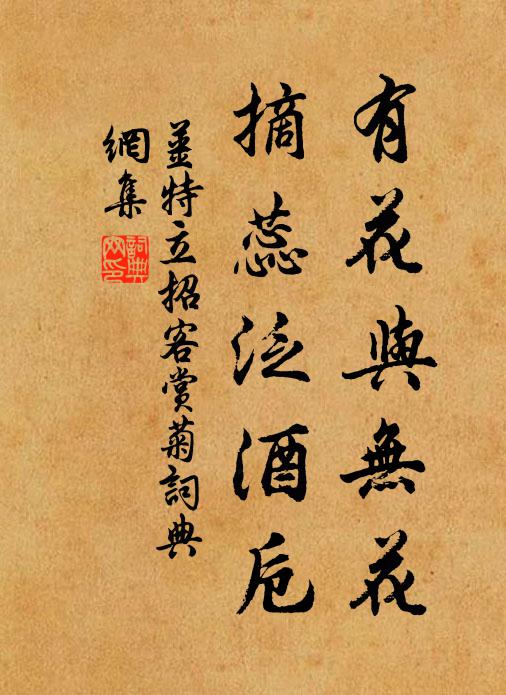 有花與無花
摘蕊泛酒卮
姜特立招客賞菊詞典
網集
詞典
網印